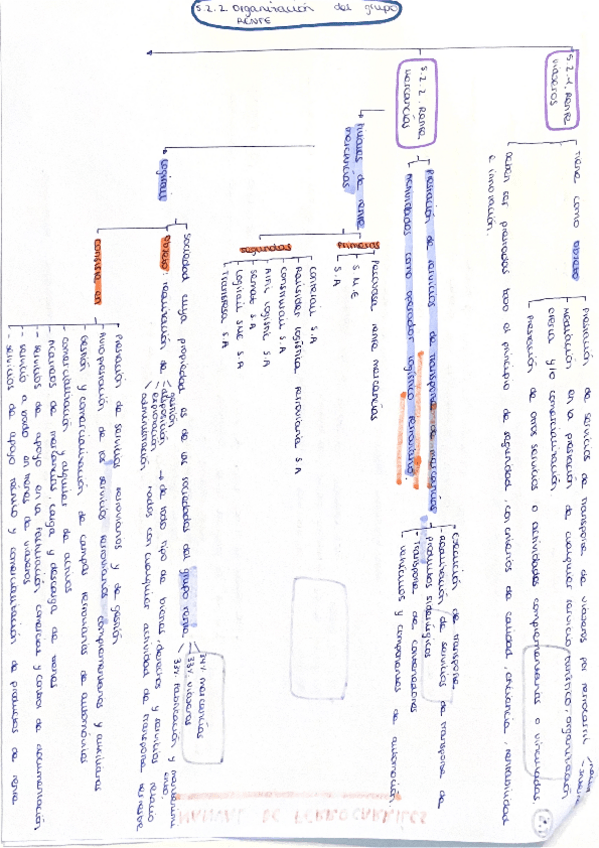 5.2.2 Organización del grupo
RENFE
5.2.1. Renfe
viajeros
Tiene como objeto
Prestación de servicios de transporte de viajeros por ferrocarril
Mediación en la prestación de cualquier servicio turístico, organización
oferta y/o comercialización
Prestación de otros servicios o actividades complementarias o vinculadas.
deben ser prestadas bajo el principio de seguridad, con criterios de calidad, eficiencia, rentabilidad
e innovación.
5.2.2. Renfe
mercancías
Prestación de servicios de transporte de mercancías
denominadas como operador logístico ferroviario.
- Ejecución de transporte
- Realización de servicios de transporte de
productos siderúrgicos
- Transporte de contenedores
vehículos y componentes de automoción
Filiales de renfe
mercancías
Primeras
Pecovasa renfe mercancías
S.M.E
S.A
Segundas
Conterail S.A
Railsider logística ferroviaria S.A
Construrail S.A
S.A
Logirail SME S.A
Transfesa S.A
Logirail
Sociedad cuya propiedad es de las sociedades del grupo renfe
34% mercancías
33% viajeros
33% fabricación y mantenimiento
Objeto: realización de
gestión
disposición
explotación
administración
de todo tipo de bienes, derechos y servicios
con cualquier actividad de transporte terrestre
consiste en
Prestación de servicios ferroviarios y de gestión
Autoprestación de los servicios ferroviarios complementarios y auxiliares
Gestión y comercialización de campas ferroviarias de automóviles
- comercialización y alquiler de activos
- Acarreos de mercancías, carga y descarga de trenes
- servicios de apoyo en la facturación comercial y control de documentación
- servicio a bordo en trenes de viajeros
- servicios de apoyo técnico y comercialización de productos de renfe
MANUAL DE FERROCARRILES